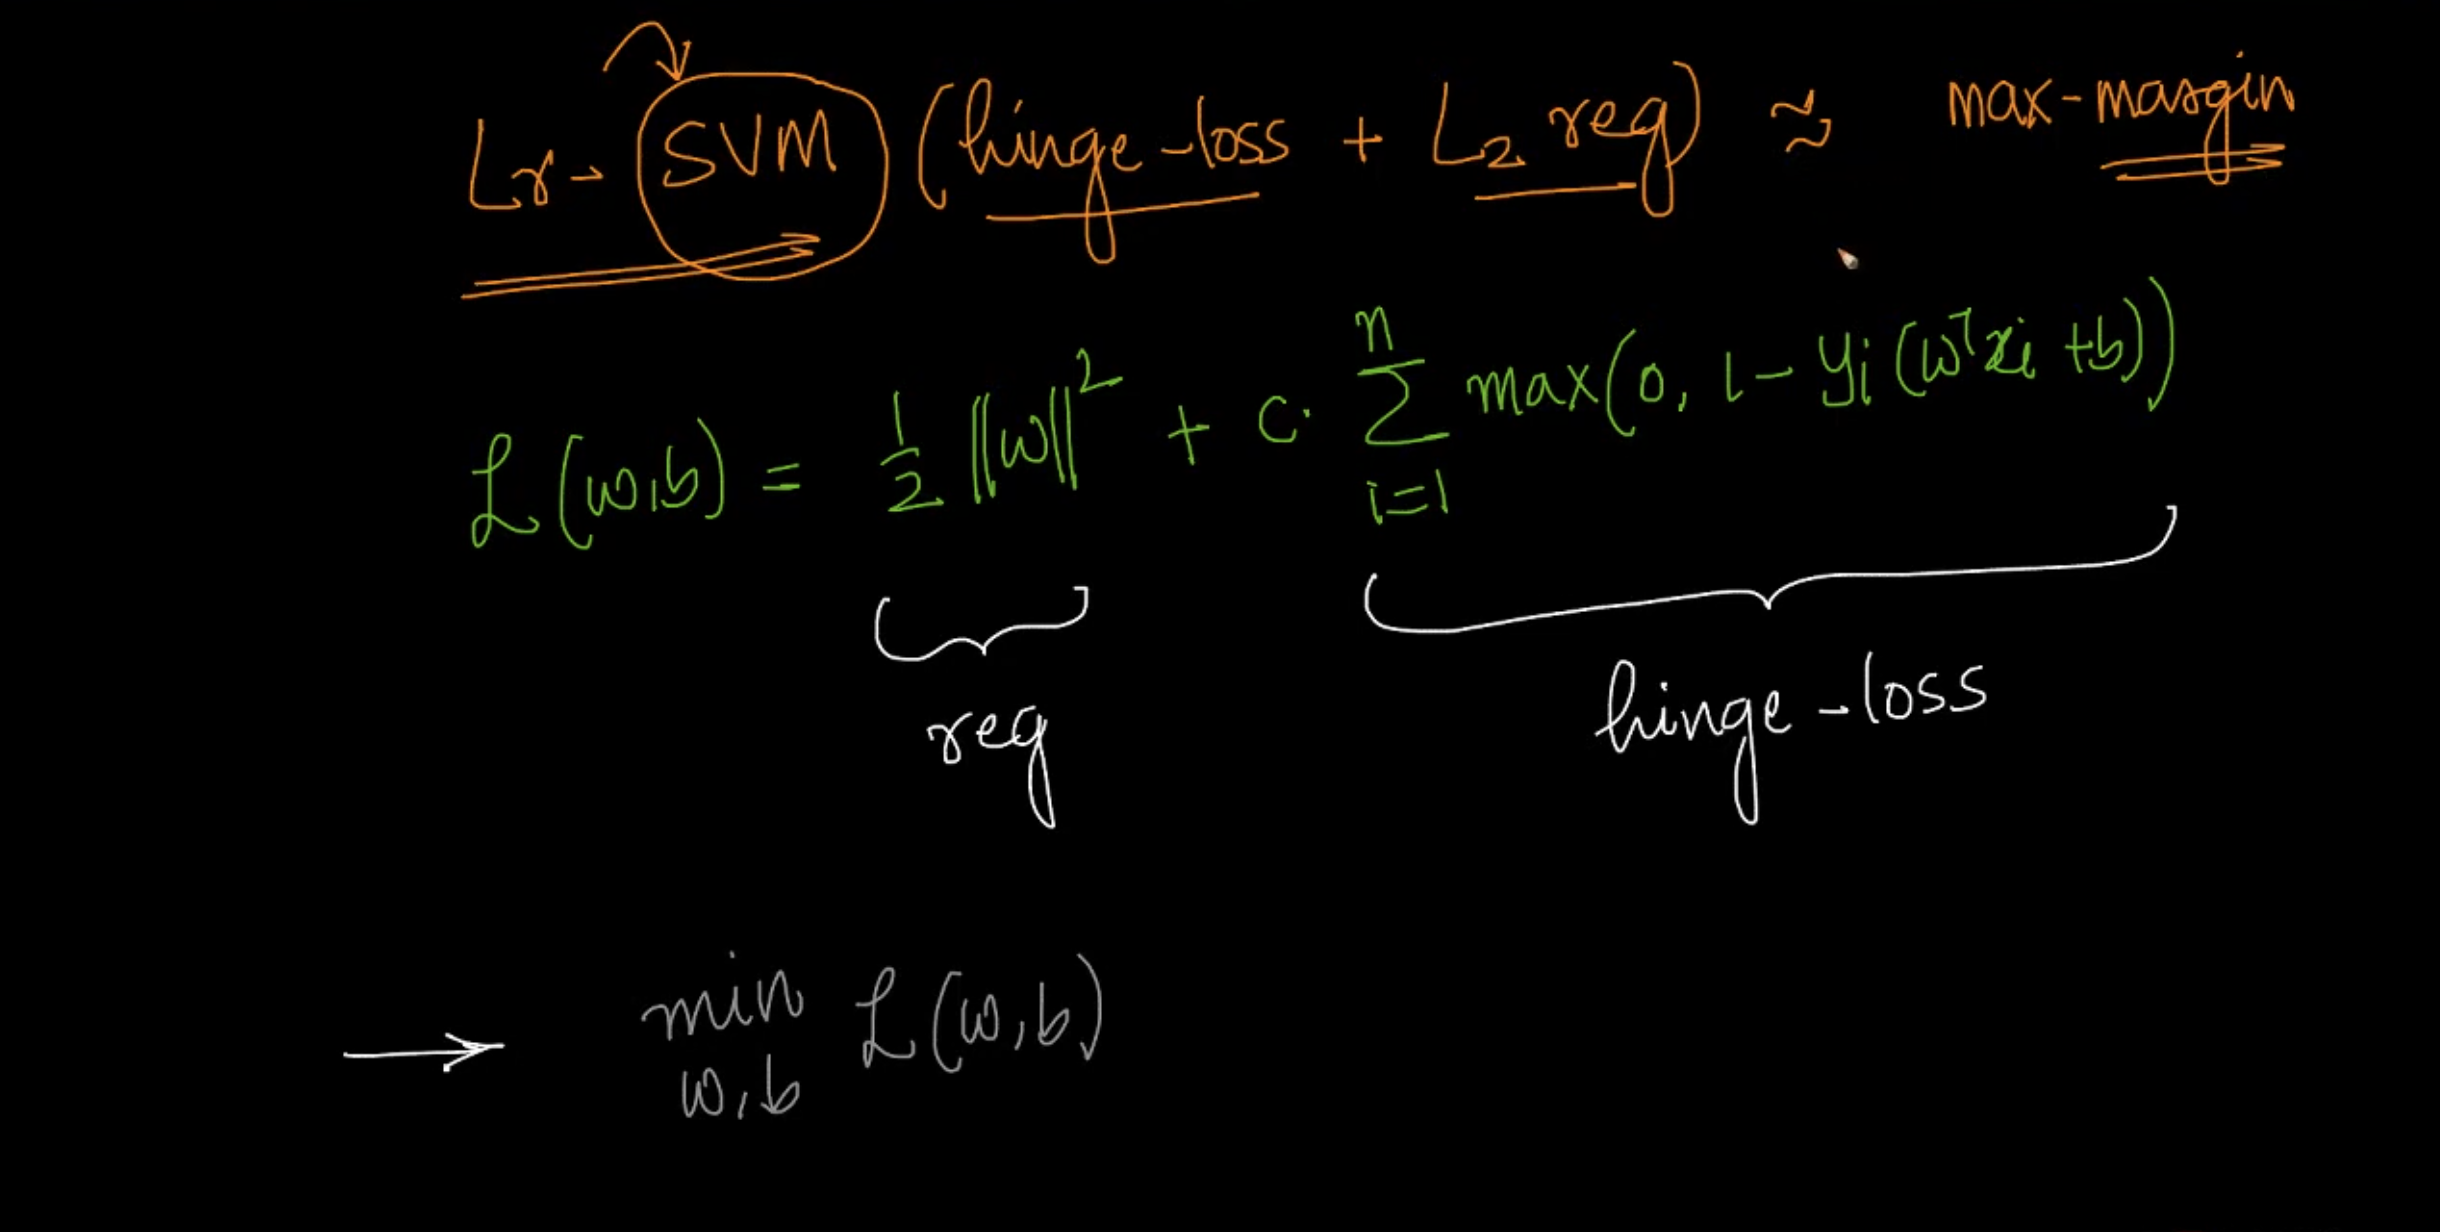 Lr - SVM (hinge-loss + L2 reg) ≈ max-margin
ℒ(w,b) = 1/2 ||w||² + C · Σ_{i=1}^{n} max(0, 1 - yi(wᵀxi + b))
reg hinge-loss
→ min_{w,b} ℒ(w,b)